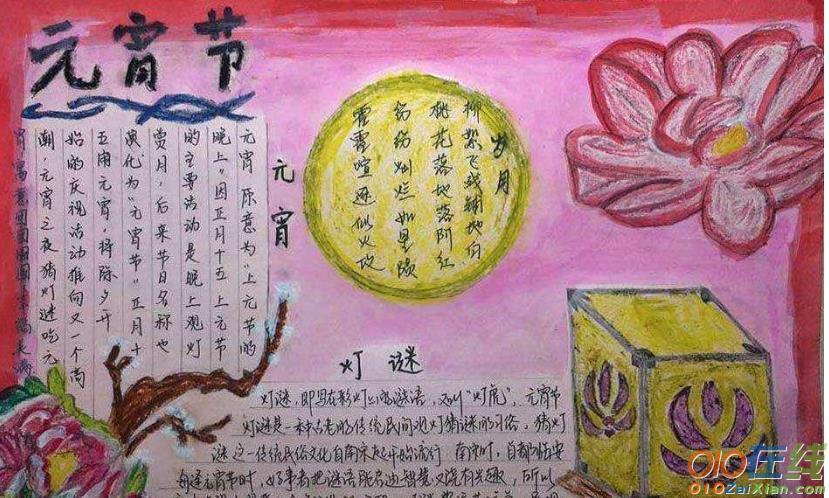 元宵节
元宵
元宵 原意为“上元节的
晚上”因正月十五上元节
的主要活动是晚上观灯
赏月,后来节日名称也
演化为“元宵节”正月十
五闹元宵,将除夕开
始的庆祝活动推向又一个高
潮,元宵之夜猜灯谜吃元
岁月
柳絮飞残铺地白
桃花落地落阶红
纷纷灿烂如星陨
霍霍喧逐似火攻
灯谜
灯谜,即写在彩灯上的谜语,又叫“灯虎”,元宵节
灯谜是一种古老的传统民间观灯猜谜的习俗,猜灯
谜这一传统民俗文化自南宋起开始流行 南宋时,首都临安
每逢元宵节时,好事者把谜语
启迪智慧又饶有兴趣,所以
010在线
010ZaiXian.com